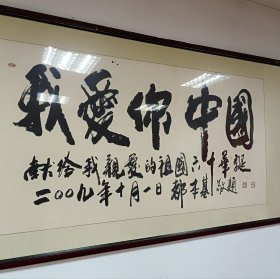 我愛你中國
献给我親愛的祖國六十華誕
二〇〇九年十月一日鄭本基敬題